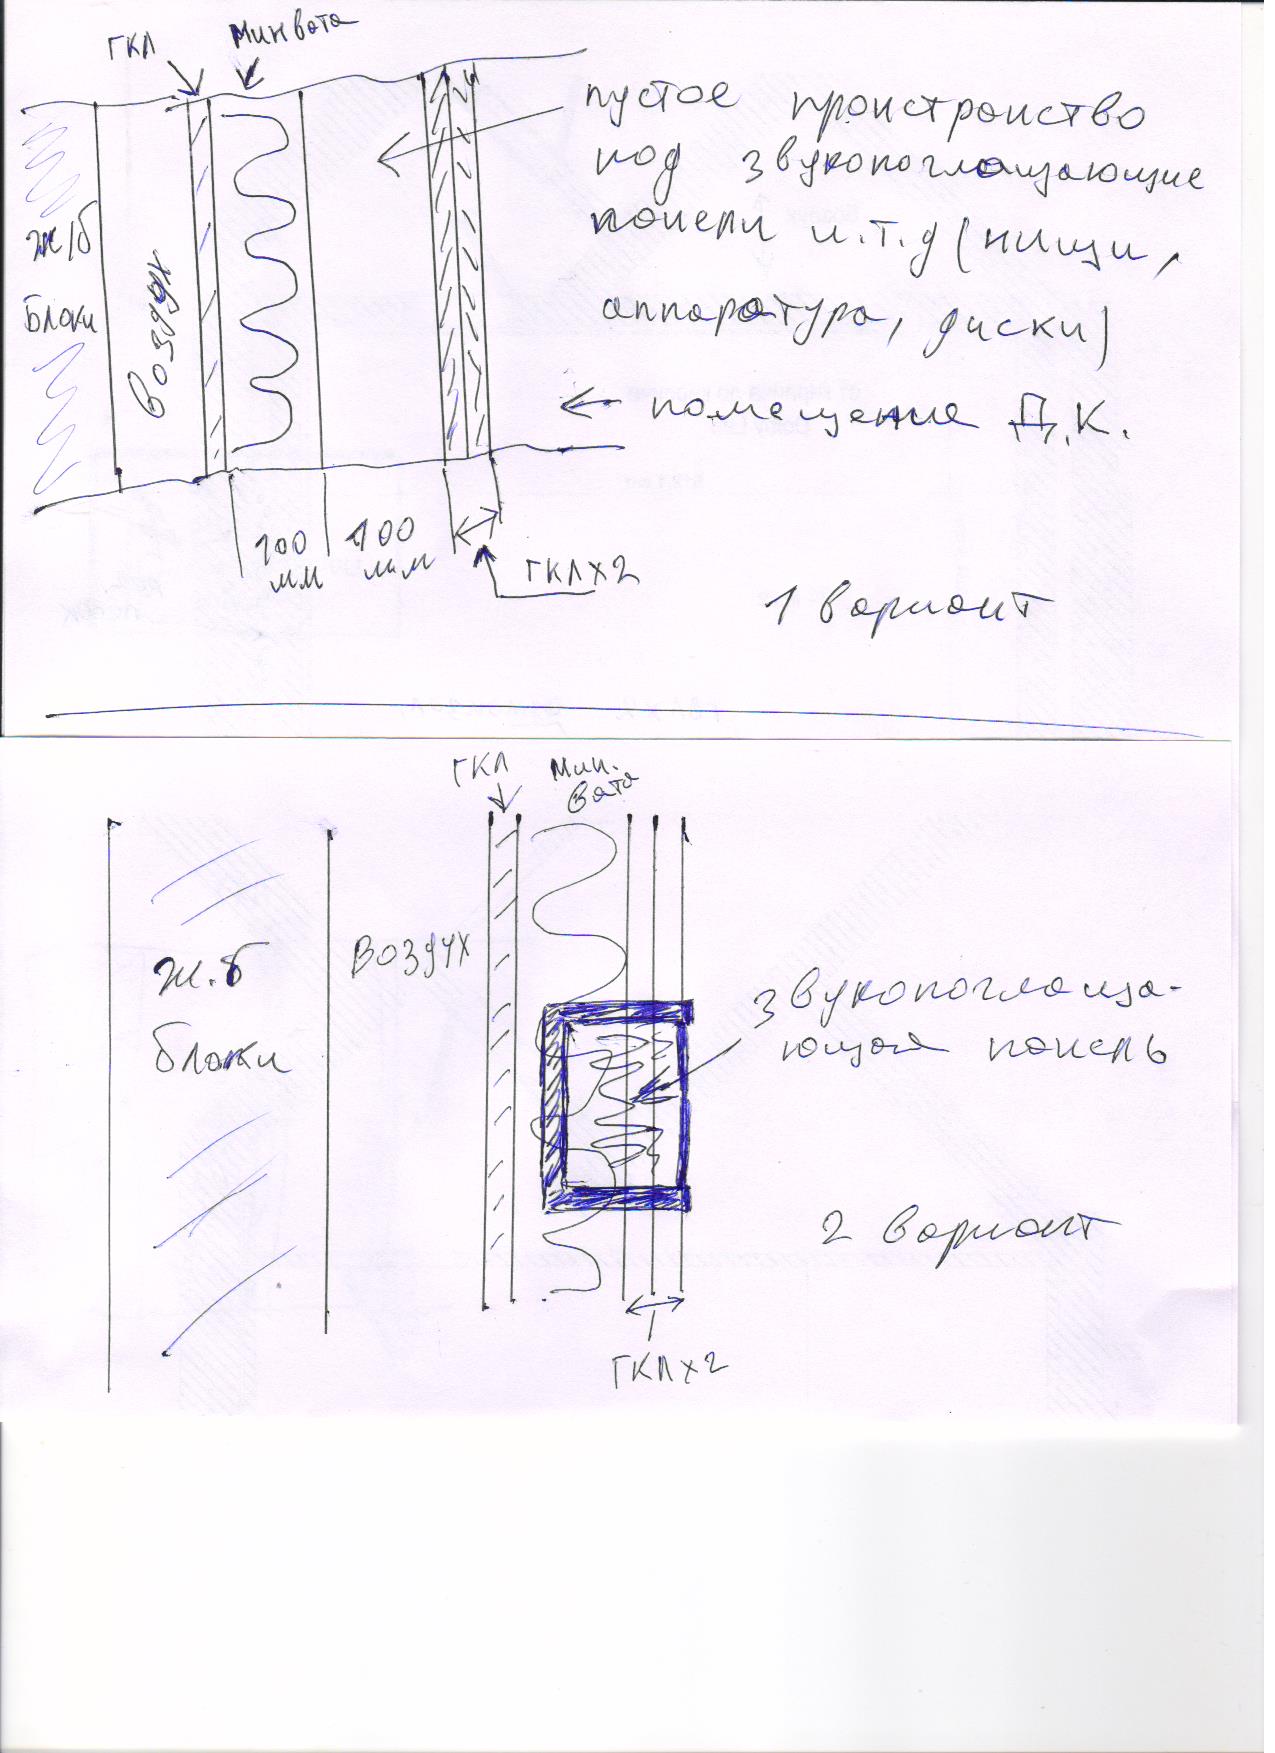 ГКЛ
Минвата
пустое пространство
под звукопоглащающие
понели и.т.д (ниши,
аппаратура, диски)
ж/б
блоки
воздух
помещение Д.К.
100
мм
100
мм
ГКЛХ2
1 вариант
ГКЛ
Мин.
вата
ж.б
блоки
воздух
звукопоглаща-
ющая понель
2 вариант
ГКЛХ2